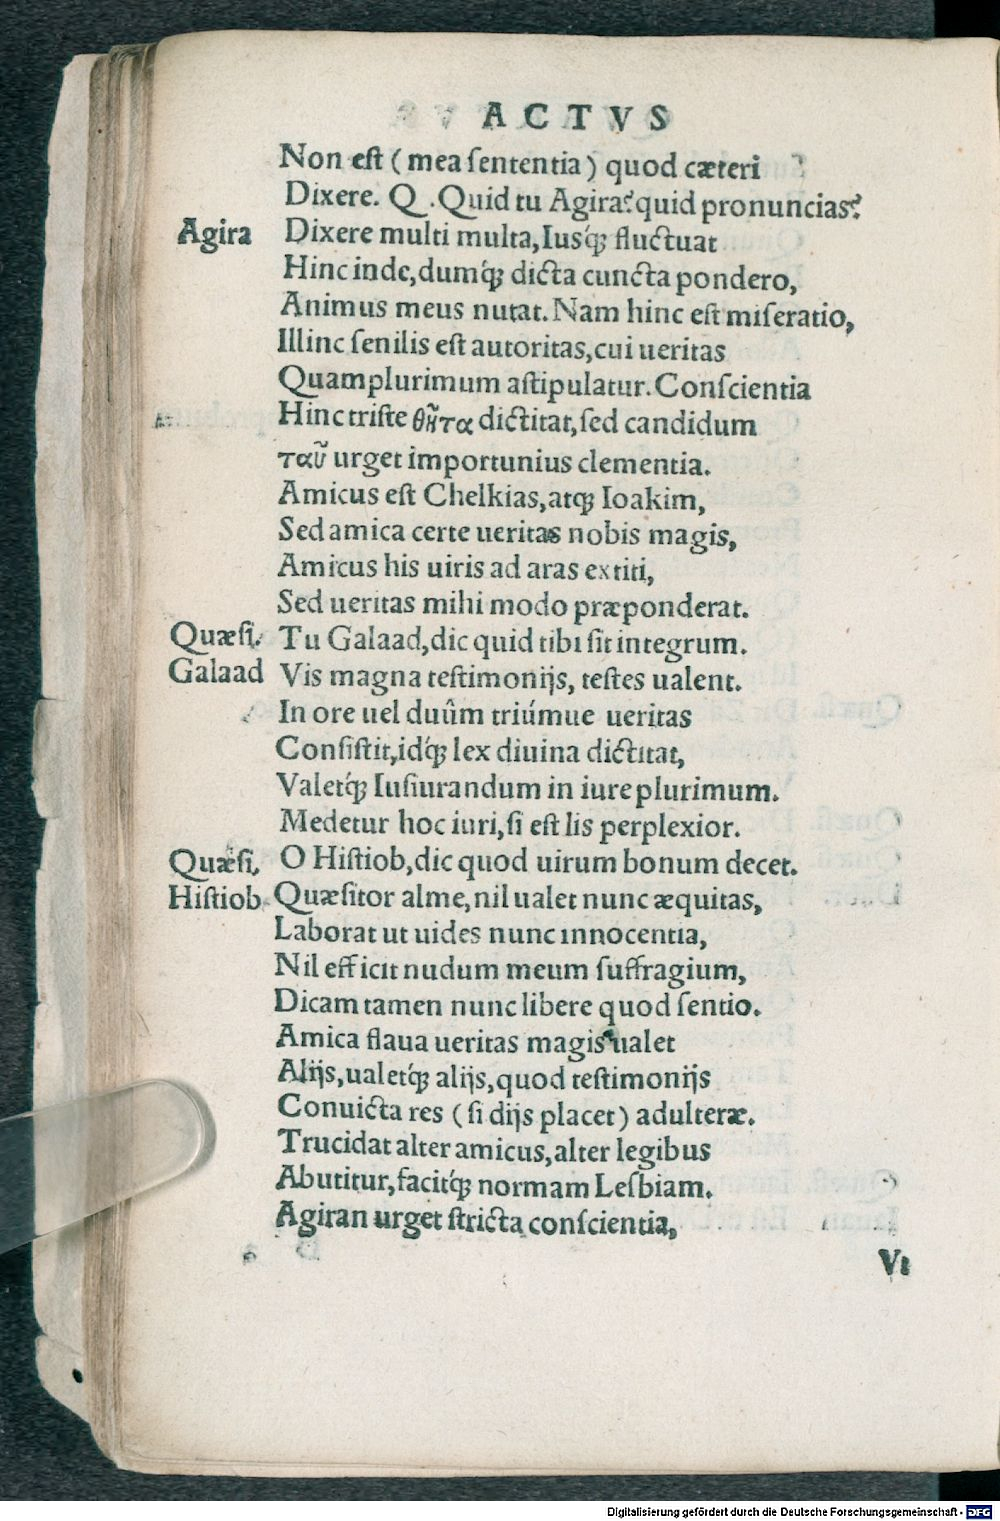 ACTVS
Non est (mea ſententia) quod cæteri
Dixere. Q .Quid tu Agira? quid pronuncias?
Agira Dixere multi multa, Iusq́ꝫ fluctuat
Hinc inde, dumq́ꝫ dicta cuncta pondero,
Animus meus nutat. Nam hinc est miſeratio,
Illinc ſenilis est autoritas, cui ueritas
Quamplurimum aſtipulatur. Conſcientia
Hinc triſte θῆτα dictitat, ſed candidum
ταῦ urget importunius clementia.
Amicus eſt Chelkias, atqꝫ Ioakim,
Sed amica certe ueritas nobis magis,
Amicus his uiris ad aras extiti,
Sed ueritas mihi modo præponderat.
Quæſi. Tu Galaad, dic quid tibi ſit integrum.
Galaad Vis magna teſtimonijs, teſtes ualent.
In ore uel duûm triúmue ueritas
Conſiſtit, idq́ꝫ lex diuina dictitat,
Valetq́ꝫ Iuſiurandum in iure plurimum.
Medetur hoc iuri, ſi eſt lis perplexior.
Quæſi. O Hiſtiob, dic quod uirum bonum decet.
Hiſtiob. Quæſitor alme, nil ualet nunc æquitas,
Laborat ut uides nunc innocentia,
Nil efficit nudum meum ſuffragium,
Dicam tamen nunc libere quod ſentio.
Amica flaua ueritas magis ualet
Alijs, ualetq́ꝫ alijs, quod teſtimonijs
Conuicta res (ſi dijs placet) adulteræ.
Trucidat alter amicus, alter legibus
Abutitur, facitq́ꝫ normam Leſbiam.
Agiran urget ſtricta conſcientia,
Vt
Digitalisierung gefördert durch die Deutsche Forschungsgemeinschaft - DFG